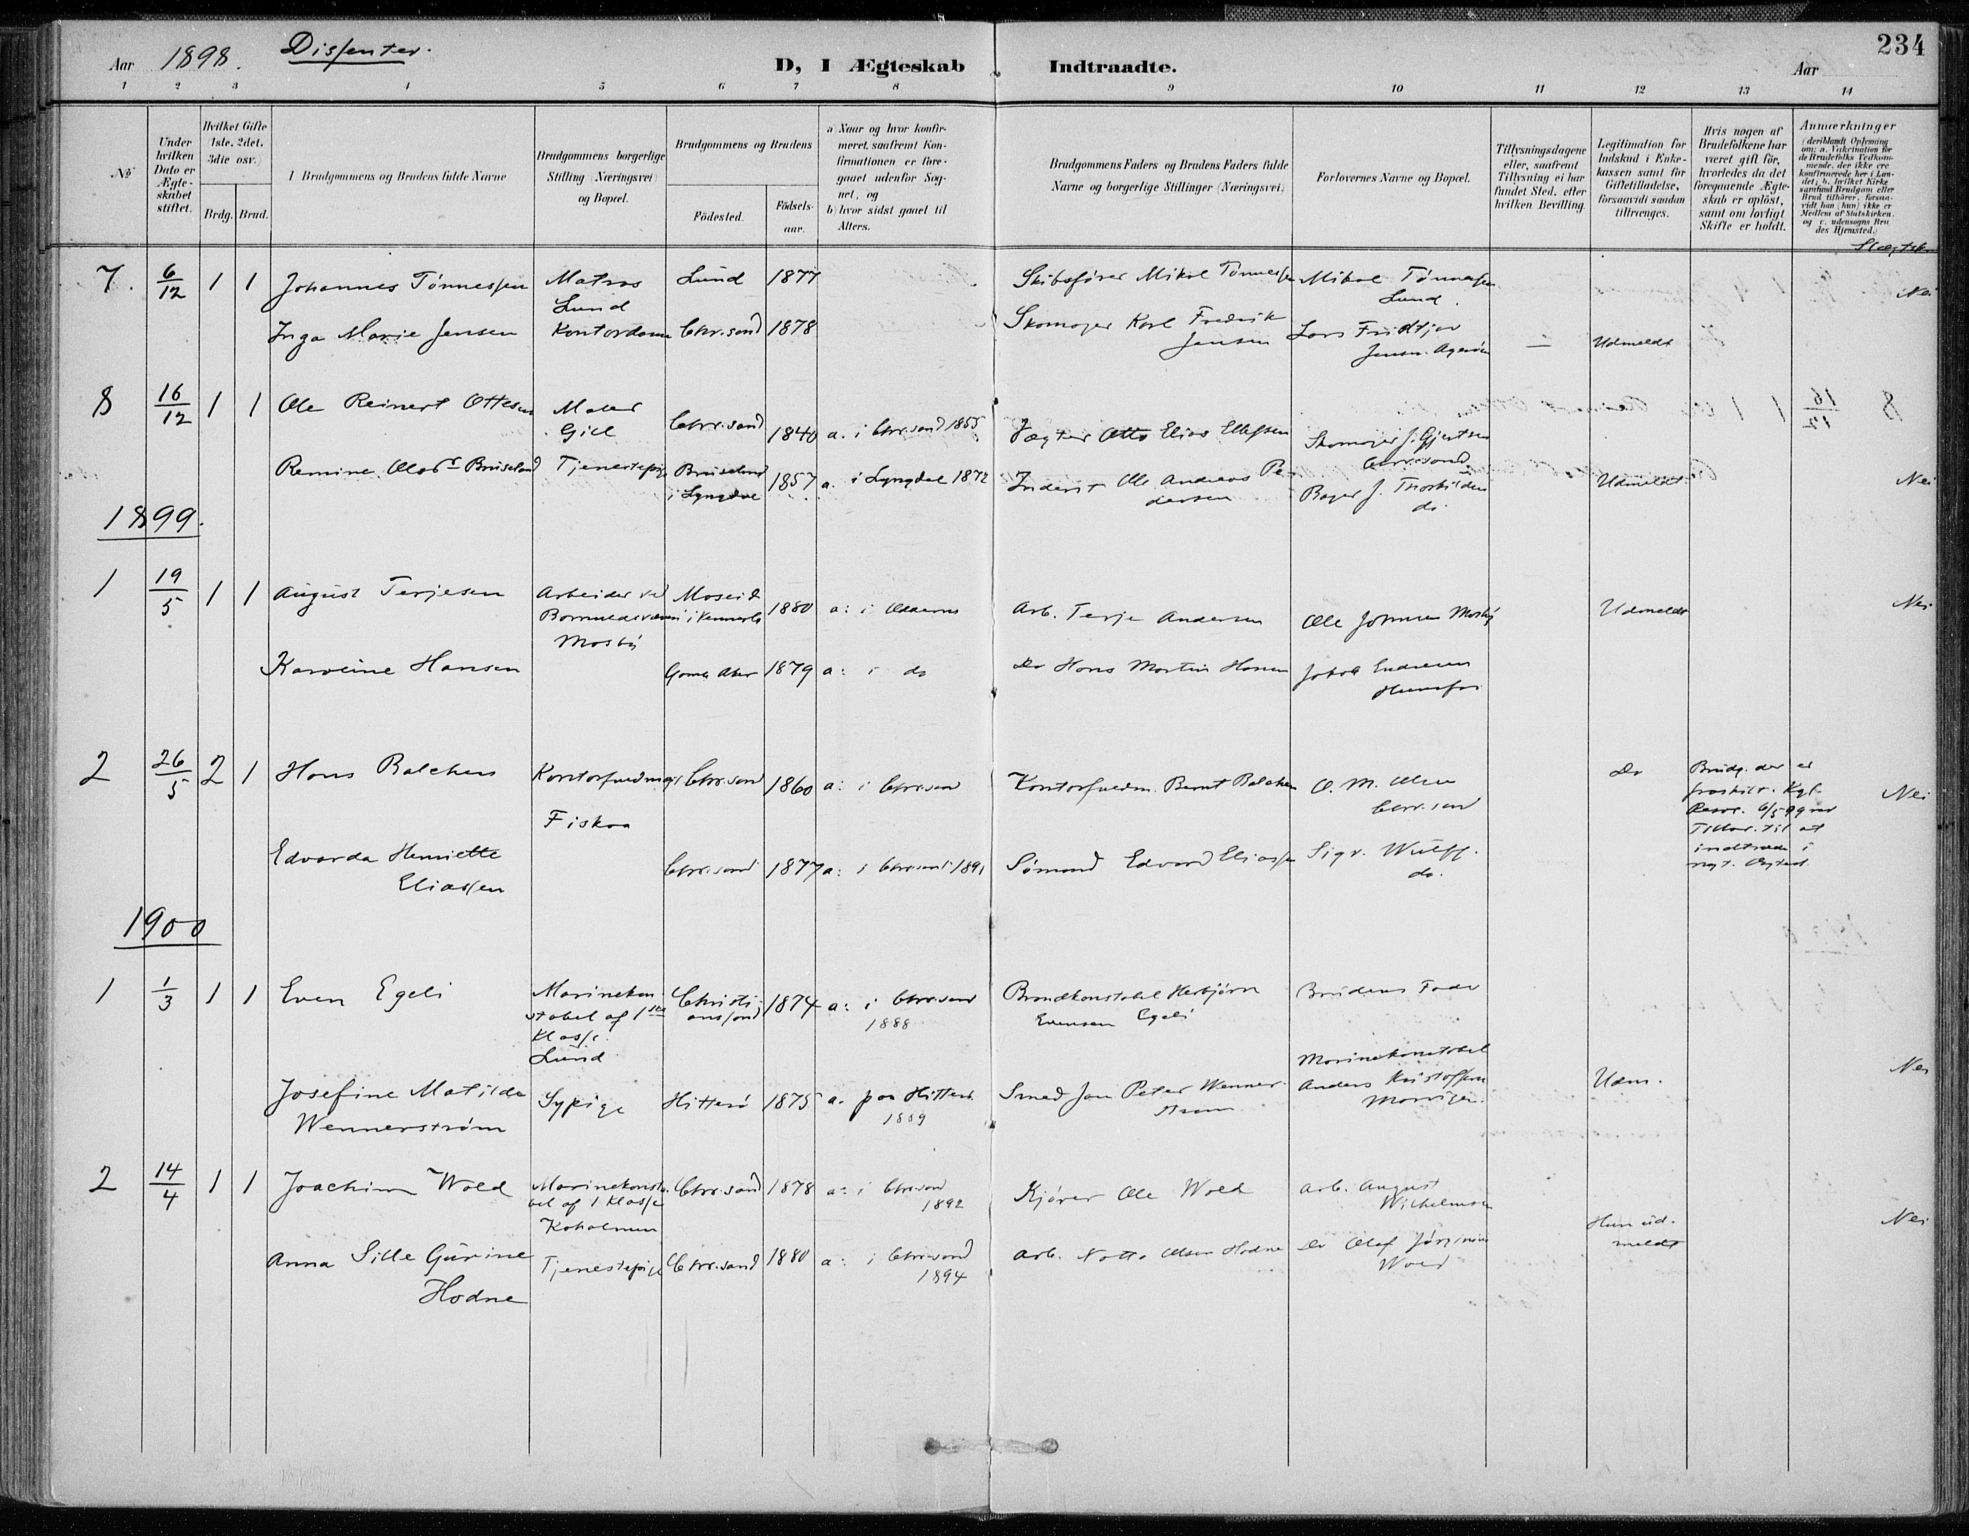 234
Aar 1898. Dissenter.
D, I Ægteskab Indtraadte.
Aar
1 2 3 4 5 6 7 8 9 10 11 12 13 14
No
Under hvilken Dato er Ægteskabet stiftet.
Hvilket Gifte (1ste, 2det, 3die osv.)
Brdg. Brud.
Brudgommens og Brudens fulde Navne
Brudgommens borgerlige Stilling (Næringsvei) og Bopæl.
Brudgommens og Brudens
Födested.
Födsels-aar.
a) Naar og hvor konfirmeret, saafremt Konfirmationen er foregaaet udenfor Sognet, og
b) hvor sidst gaaet til Alters.
Brudgommens Faders og Brudens Faders fulde Navne og borgerlige Stillinger (Næringsvei)
Forlovernes Navne og Bopæl.
Tillysningsdagene eller, saafremt Tillysning ei har fundet Sted, efter hvilken Bevilling.
Legitimation for Indskud i Enkekassen samt for Giftetilladelse, forsaavidt saadan tiltrænges.
Hvis nogen af Brudefolkene har været gift før, hvorledes da det foregaaende Ægteskab er opløst, samt om lovligt Skifte er holdt.
Anmærkninger
7. 6/12 1 1 Johannes Tønnessen Matros Lund Lund 1877 Skibsfører Mikal Tønnessen Mikal Tønnessen Lund. Nei
Inga Marie Jensen Kontordame Chr.sand 1878 Skomager Karl Fredrik Jensen Lars Fridtjov Jensen — Udmeldt
8 16/12 1 1 Ole Reinert Ottesen Maler Gill Chr.sand 1840 a. i Chr.sand 1855 Vægter Otto Elias Ellefsen Skomager J. Gjertsen Chr.sand
Remine Olesd. Bruseland Tjenestepige Bruseland i Lyngdal 1857 a. i Lyngdal 1872 Inderst Ole Andreas Pedersen Bager J. Thorkildsen do. Udmeldt Nei
1899.
1 19/5 1 1 August Terjesen Arbeider ved Mosby Moseid 1880 a: i Arb. Terje Andersen Ole Johnsen Mosby Udmeldt Nei
Karoline Hansen 1879 a: i do Do Hans Martin Hansen Jakob Hunsfos
2 26/5 2 1 Hans Balchen Kontorfuldmægt. Fiskaa Chr.sand 1860 a: i Chr.sand Kontorfuldm. Bernt Balchen O. M. Olsen Chr.sand Do Brudg. der er fraskilt. Kgl. Resor. 6/5 99 Tillad. til at indtræde i nyt Ægtesk. Nei
Edvarda Henriette Eliassen Chr.sand 1877 a: i Chr.sand 1891 Sømand Edvard Eliassen Sigv. Wulff. do.
1900
1 1/3 1 1 Even Egeli Marinekonstabel af 1ste Klasse. Lund Christianssand 1874 a: i Chr.sand 1888 Brandkonstabel Herbjørn Evensen Egeli Brudens Fader
Josefine Matilde Wennerstrøm Sypige Hitterø 1875 a. paa Hitterø 1889 Smed Jan Peter Wennerstrøm Marinekonstabel Anders Kristoffersen Udm. Nei
2 14/4 1 1 Joachim Wold Marinekonstabel af 1 Klasse Koholmen Chr.sand 1878 a: i Chr.sand 1892 Kjører Ole Wold Arb. August Wilhelmsen Hun udmeldt Nei
Anna Sille Gurine Hodne Tjenestepige Chr.sand 1880 a: i Chr.sand 1894 Arb. Notto Olsen Hodne Do Olaf Jørginius Wold